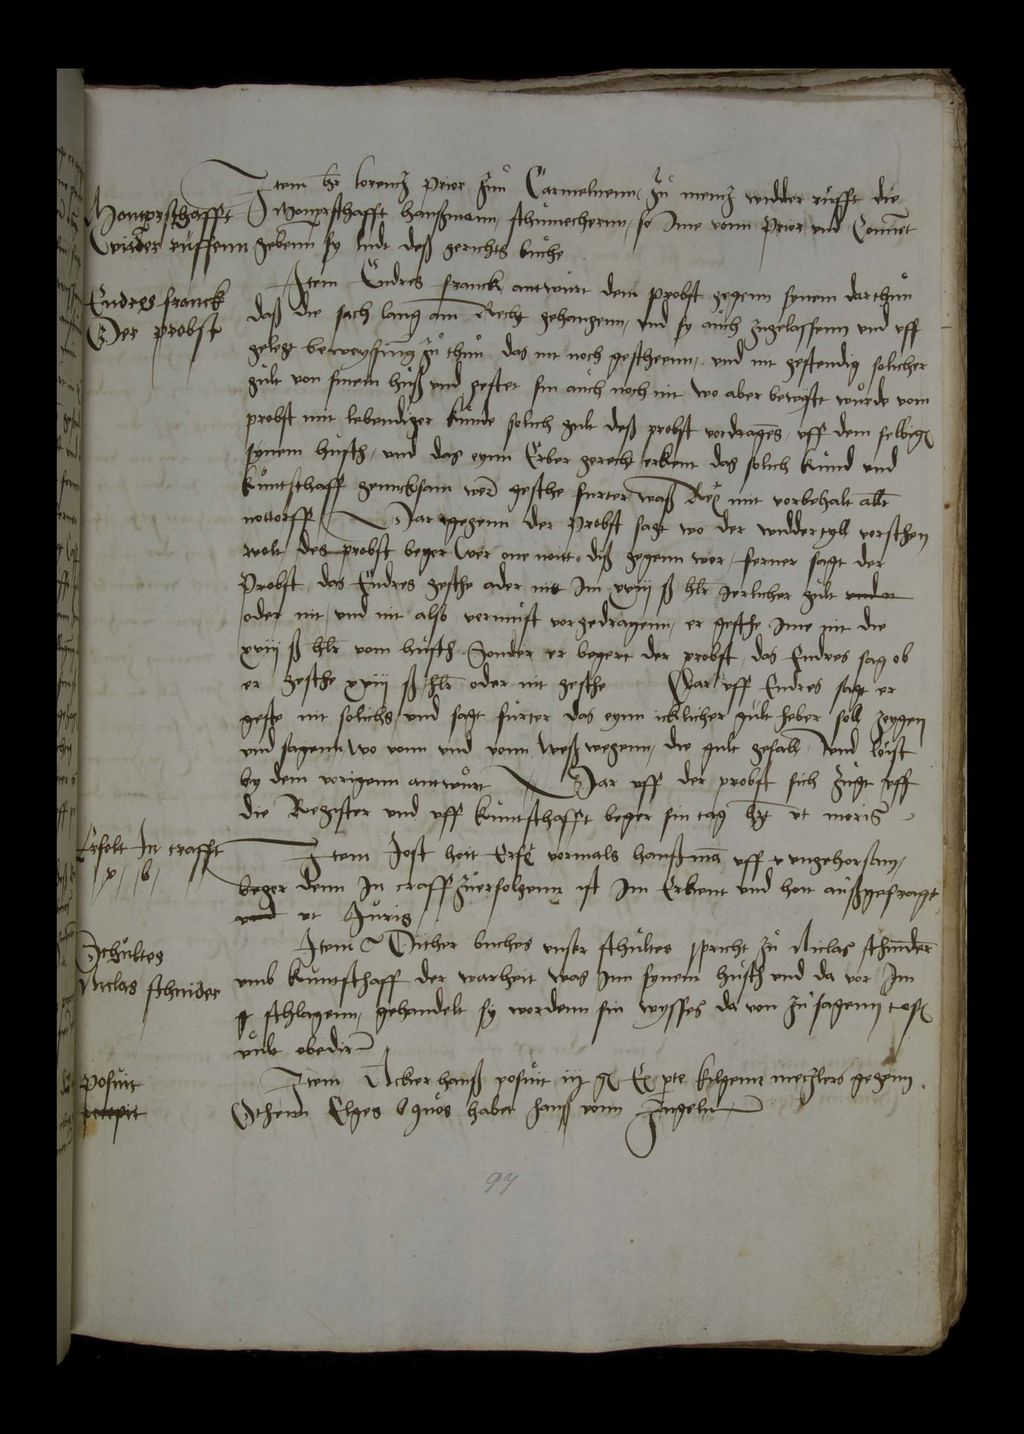 Momperschafft
Widder ruffenn
Item her lorentz Prior zun Carmelienn zu mentz widder rufft die
Momperschafft hanßmann schumechernn so Ime vonn Prior und Convet
gebenn sy ludt deß gerichts buche
Endres Franck
Der probst
Item Endres franck antwurt dem probst gegenn synem darthun
daß die sach lang am Recht gehangenn und sy auch zugelassenn und uff
gelegt beweysung zu thun das nit noch gescheenn und nit gestendig solicher
gult von sinem huß und gestet sin auch noch nit wo aber bewyst wurde vom
probst mit lebendiger kunde solich gult deß probst vordrages uff dem selbig
synem husch und das eynn Erber gerecht erkent das solich kund und
kuntschafft genucksam wer geschee furter waß Rex mit vorbehalt allt
nottorff Dar gegenn der Probst sagt wo der widderteyll vorsthen
wolt des probst beger wer one nott diß gegenn wer ferner sagt der
Probst das Endres gesthe ader nit Im xviij ß hlr Jerlicher gult
oder nit und nit also vernuft vorgedragenn er gesthe Ime nit die
xviij ß hlr vom husch Sonder er begert der probst das Endres sag ob
er gesthe xviij ß hlr oder nit gesthe Dar uff Endres sagt er
geste nit solichs und sagt furter das eynn icklicher gult heber soll zeygen
und sagenn wo vonn und vonn weß wegenn die gult gefall und loist
by dem vorigenn antwurt Dar uff der probst sich zugt uff
die Register und uff kuntschafft beger sin tag ut moris
Erfolt In crafft
Item Jost hett Erf vormals hanßman uff v ungehorsam
beger denn In crafft zuerfolgenn ist Im Erkent und hett außgefragt
ut Juris
Schultes
Niclas schnider
Item Dither buches unser schultes spricht zu Niclas schnider
umb kuntschafft der warheit was Inn synem husch und da vor Im
schlagenn gehandelt sy wordenn sin wysses da von zu sagenn
vult obedir
Posuit
Item Acker hanß posuit iij g Ex pte kilgenn metzlers gegenn
Ethenn Elges quos habet hanß vonn Jngelnn
97